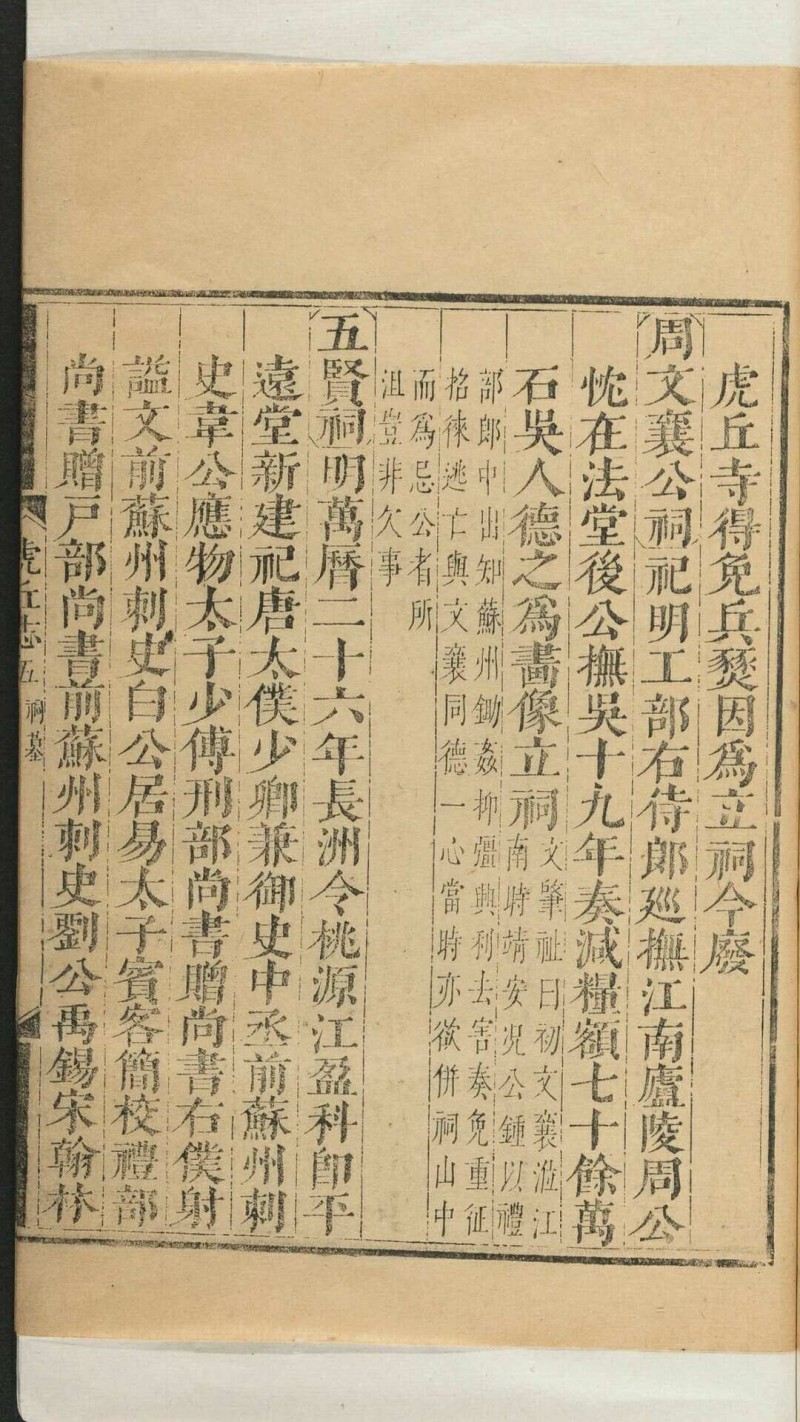 虎丘寺得免兵燹因爲立祠今廢
周文襄公祠祀明工部右待郎廵撫江南廬陵周公
忱在法堂後公撫吳十九年奏減糧額七十餘萬
石吳人德之爲畵像立祠文肇祉曰初文襄涖江
南時靖安况公鍾以禮
部郎中出知蘇州鋤姦抑彊興利去害奏免重征
招徠逃亡與文襄同德一心當時亦欲併祠山中
而爲忌公者所
沮豈非欠事
五賢祠明萬曆二十六年長洲令桃源江盈科即平
遠堂新建祀唐太僕少卿兼御史中丞前蘇州刺
史韋公應物太子少傅刑部尚書贈尚書右僕射
謚文前蘇州刺史白公居易太子賓客簡校禮部
尚書贈戸部尚書前蘇州刺史劉公禹錫宋翰林
虎丘志 五 祠墓